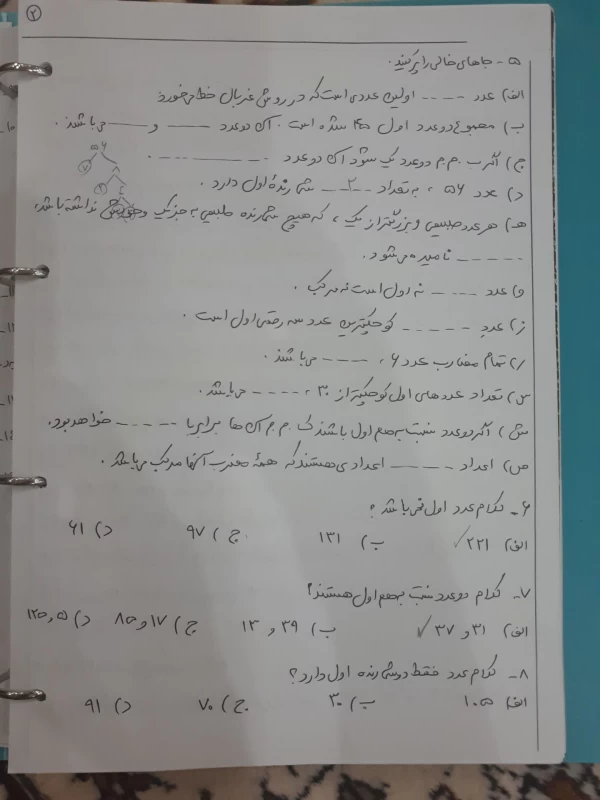 ۲
۵- جاهای خالی را پر کنید.
الف) عدد ---- اولین عددی است که در روش غربال خط می‌خورد
ب) مجموع دو عدد اول ۴۵ شده است. آن دو عدد ---- و ---- می‌باشند.
ج) اگر ب.م.م دو عدد یک شود آن دو عدد --------.
د) عدد ۵۶، به تعداد --۲-- شمارندهٔ اول دارد.
هـ) هر عدد طبیعی و بزرگتر از یک، که هیچ شمارنده طبیعی به جز یک و خودش نداشته باشد،
----- نامیده می‌شود.
و) عدد ---- نه اول است نه مرکب.
ز) عدد ----- کوچکترین عدد سه رقمی اول است.
ر) تمام مضارب عدد ۶، ---- می‌باشند.
س) تعداد عددهای اول کوچکتر از ۳۰، ---- می‌باشد.
ش) اگر دو عدد نسبت به هم اول باشند ک.م.م آن ها برابر با ----- خواهد بود.
ص) اعداد ----- اعدادی هستند که همهٔ مضرب آنها مرکب می‌باشد.
۶- کدام عدد اول نمی‌باشد؟
الف) ۲۲۱ ✓ ب) ۱۳۱ ج) ۹۷ د) ۶۱
۷- کدام دو عدد نسبت بهم اول هستند؟
الف) ۳۱ و ۳۷ ✓ ب) ۳۹ و ۱۳ ج) ۱۷ و ۸۵ د) ۵ و ۱۲۵
۸- کدام عدد فقط دو شمارنده اول دارد؟
الف) ۱۰۵ ب) ۳۰ ج) ۷۰ د) ۹۱